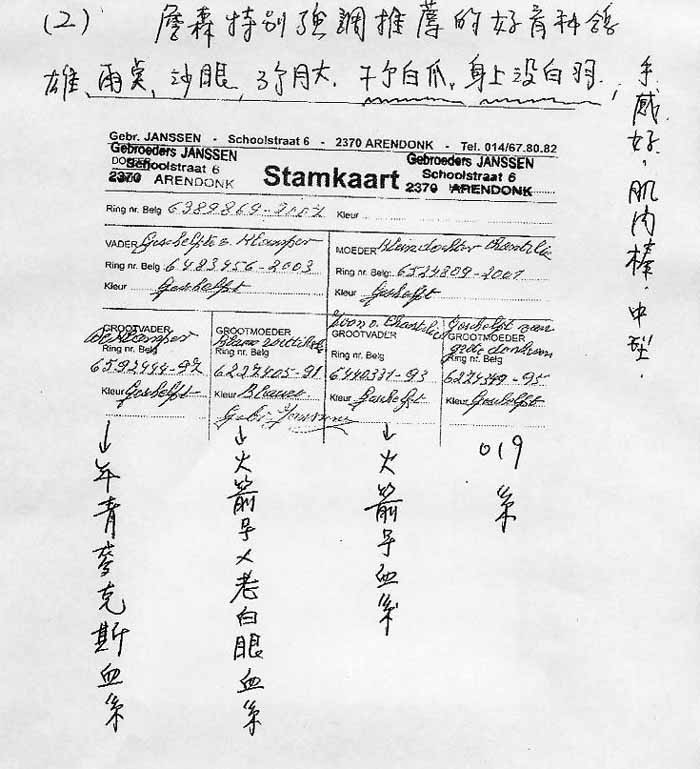 (2) 詹森特別強調推薦的好育种鴿
雄、雨点、沙眼、3个月大、干个白爪、身上没白羽；
手感好，肌肉棒，中型．
Gebr. JANSSEN - Schoolstraat 6 - 2370 ARENDONK - Tel. 014/67.80.82
Gebroeders JANSSEN
Schoolstraat 6
2370 ARENDONK
Stamkaart
Gebroeders JANSSEN
Schoolstraat 6
2370 ARENDONK
Ring nr. Belg 6389869-2007 Kleur
VADER Geschelpte v. Klamper
Ring nr. Belg 6483456-2003
Kleur Geschelpt
MOEDER
Ring nr. Belg. 6524809-2001
Kleur Geschelpt
GROOTVADER
de Klamper
Ring nr. Belg
6592444-92
Kleur Geschelpt
GROOTMOEDER
Ring nr. Belg
6227405-91
Kleur Blauwe
Gebr. Janssen
GROOTVADER
Ring nr. Belg
6440331-93
Kleur Geschelpt
GROOTMOEDER
Geschelpt van
Ring nr. Belg
6274349-95
Kleur Geschelpt
↓年青麥克斯血系
↓火箭号×老白眼血系
↓火箭号血系
019系